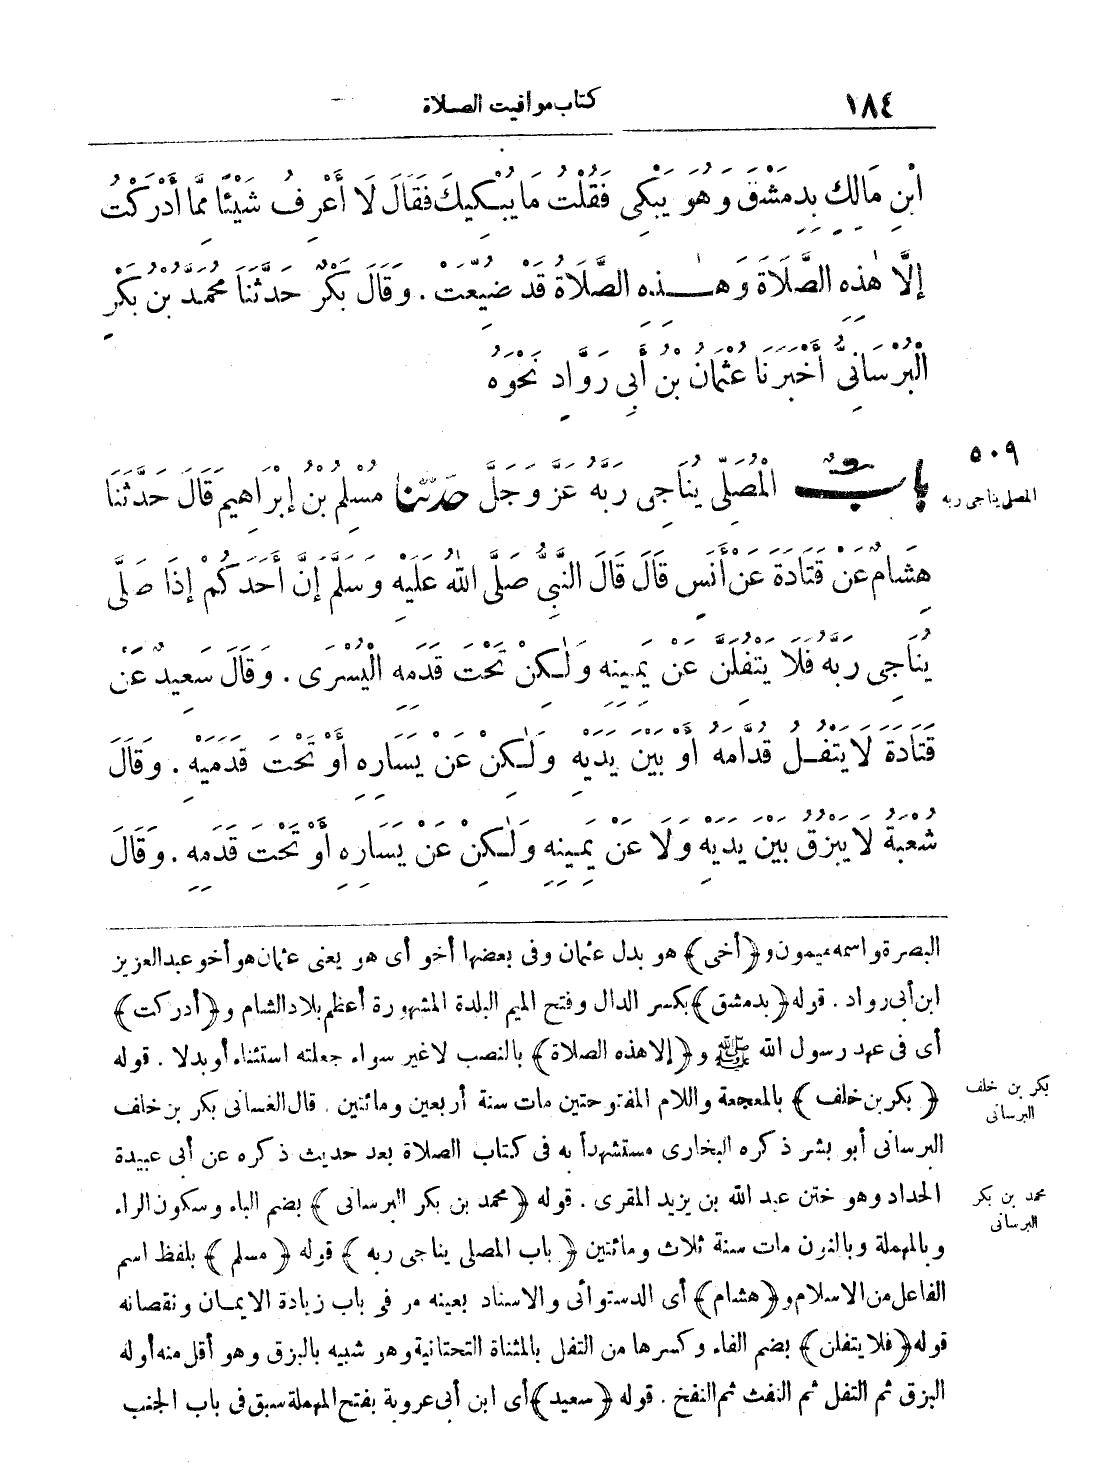 ١٨٤
كتاب مواقيت الصلاة
ابْنِ مَالِكٍ بِدِمَشْقَ وَهُوَ يَبْكِي فَقُلْتُ مَا يُبْكِيكَ فَقَالَ لَا أَعْرِفُ شَيْئًا مِمَّا أَدْرَكْتُ
إِلَّا هٰذِهِ الصَّلَاةَ وَهٰذِهِ الصَّلَاةُ قَدْ ضُيِّعَتْ . وَقَالَ بَكْرٌ حَدَّثَنَا مُحَمَّدُ بْنُ بَكْرٍ
الْبُرْسَانِيُّ أَخْبَرَنَا عُثْمَانُ بْنُ أَبِي رَوَّادٍ نَحْوَهُ
٥٠٩
المصلى يناجى ربه
بَابٌ الْمُصَلِّى يُنَاجِى رَبَّهُ عَزَّ وَجَلَّ حَدَّثَنَا مُسْلِمُ بْنُ إِبْرَاهِيمَ قَالَ حَدَّثَنَا
هِشَامٌ عَنْ قَتَادَةَ عَنْ أَنَسٍ قَالَ قَالَ النَّبِيُّ صَلَّى اللهُ عَلَيْهِ وَسَلَّمَ إِنَّ أَحَدَكُمْ إِذَا صَلَّى
يُنَاجِى رَبَّهُ فَلَا يَتْفِلَنَّ عَنْ يَمِينِهِ وَلٰكِنْ تَحْتَ قَدَمِهِ الْيُسْرَى . وَقَالَ سَعِيدٌ عَنْ
قَتَادَةَ لَا يَتْفِلُ قُدَّامَهُ أَوْ بَيْنَ يَدَيْهِ وَلٰكِنْ عَنْ يَسَارِهِ أَوْ تَحْتَ قَدَمَيْهِ . وَقَالَ
شُعْبَةُ لَا يَبْزُقُ بَيْنَ يَدَيْهِ وَلَا عَنْ يَمِينِهِ وَلٰكِنْ عَنْ يَسَارِهِ أَوْ تَحْتَ قَدَمِهِ . وَقَالَ
البصرة واسمه ميمون و﴿أخى﴾ هو بدل عثمان وفى بعضها أخو أى هو يعنى عثمان هو أخو عبد العزيز
ابن أبى رواد . قوله ﴿بدمشق﴾ بكسر الدال وفتح الميم البلدة المشهورة أعظم بلاد الشام و﴿أدركت﴾
أى فى عهد رسول الله ﷺ و﴿إلا هذه الصلاة﴾ بالنصب لاغير سواء جعلته استثناء أو بدلا . قوله
﴿بكر بن خلف﴾ بالمعجمة واللام المفتوحتين مات سنة أربعين ومائتين . قال الغسانى بكر بن خلف
بكر بن خلف
البرسانى
البرسانى أبو بشر ذكره البخارى مستشهدأ به فى كتاب الصلاة بعد حديث ذكره عن أبى عبيدة
الحداد وهو ختن عبد الله بن يزيد المقرى . قوله ﴿محمد بن بكر البرسانى﴾ بضم الباء وسكون الراء
محمد بن بكر
البرسانى
وبالمهملة وبالنون مات سنة ثلاث ومائتين ﴿باب المصلى يناجى ربه﴾ قوله ﴿مسلم﴾ بلفظ اسم
الفاعل من الاسلام و﴿هشام﴾ أى الدستوائى والاسناد بعينه مر فى باب زيادة الايمان ونقصانه
قوله ﴿فلا يتفلن﴾ بضم الفاء وكسرها من التفل بالمثناة التحتانية وهو شبيه بالبزق وهو أقل منه أوله
البزق ثم التفل ثم النفث ثم النفخ . قوله ﴿سعيد﴾ أى ابن أبى عروبة بفتح المهملة سبق فى باب الجنب